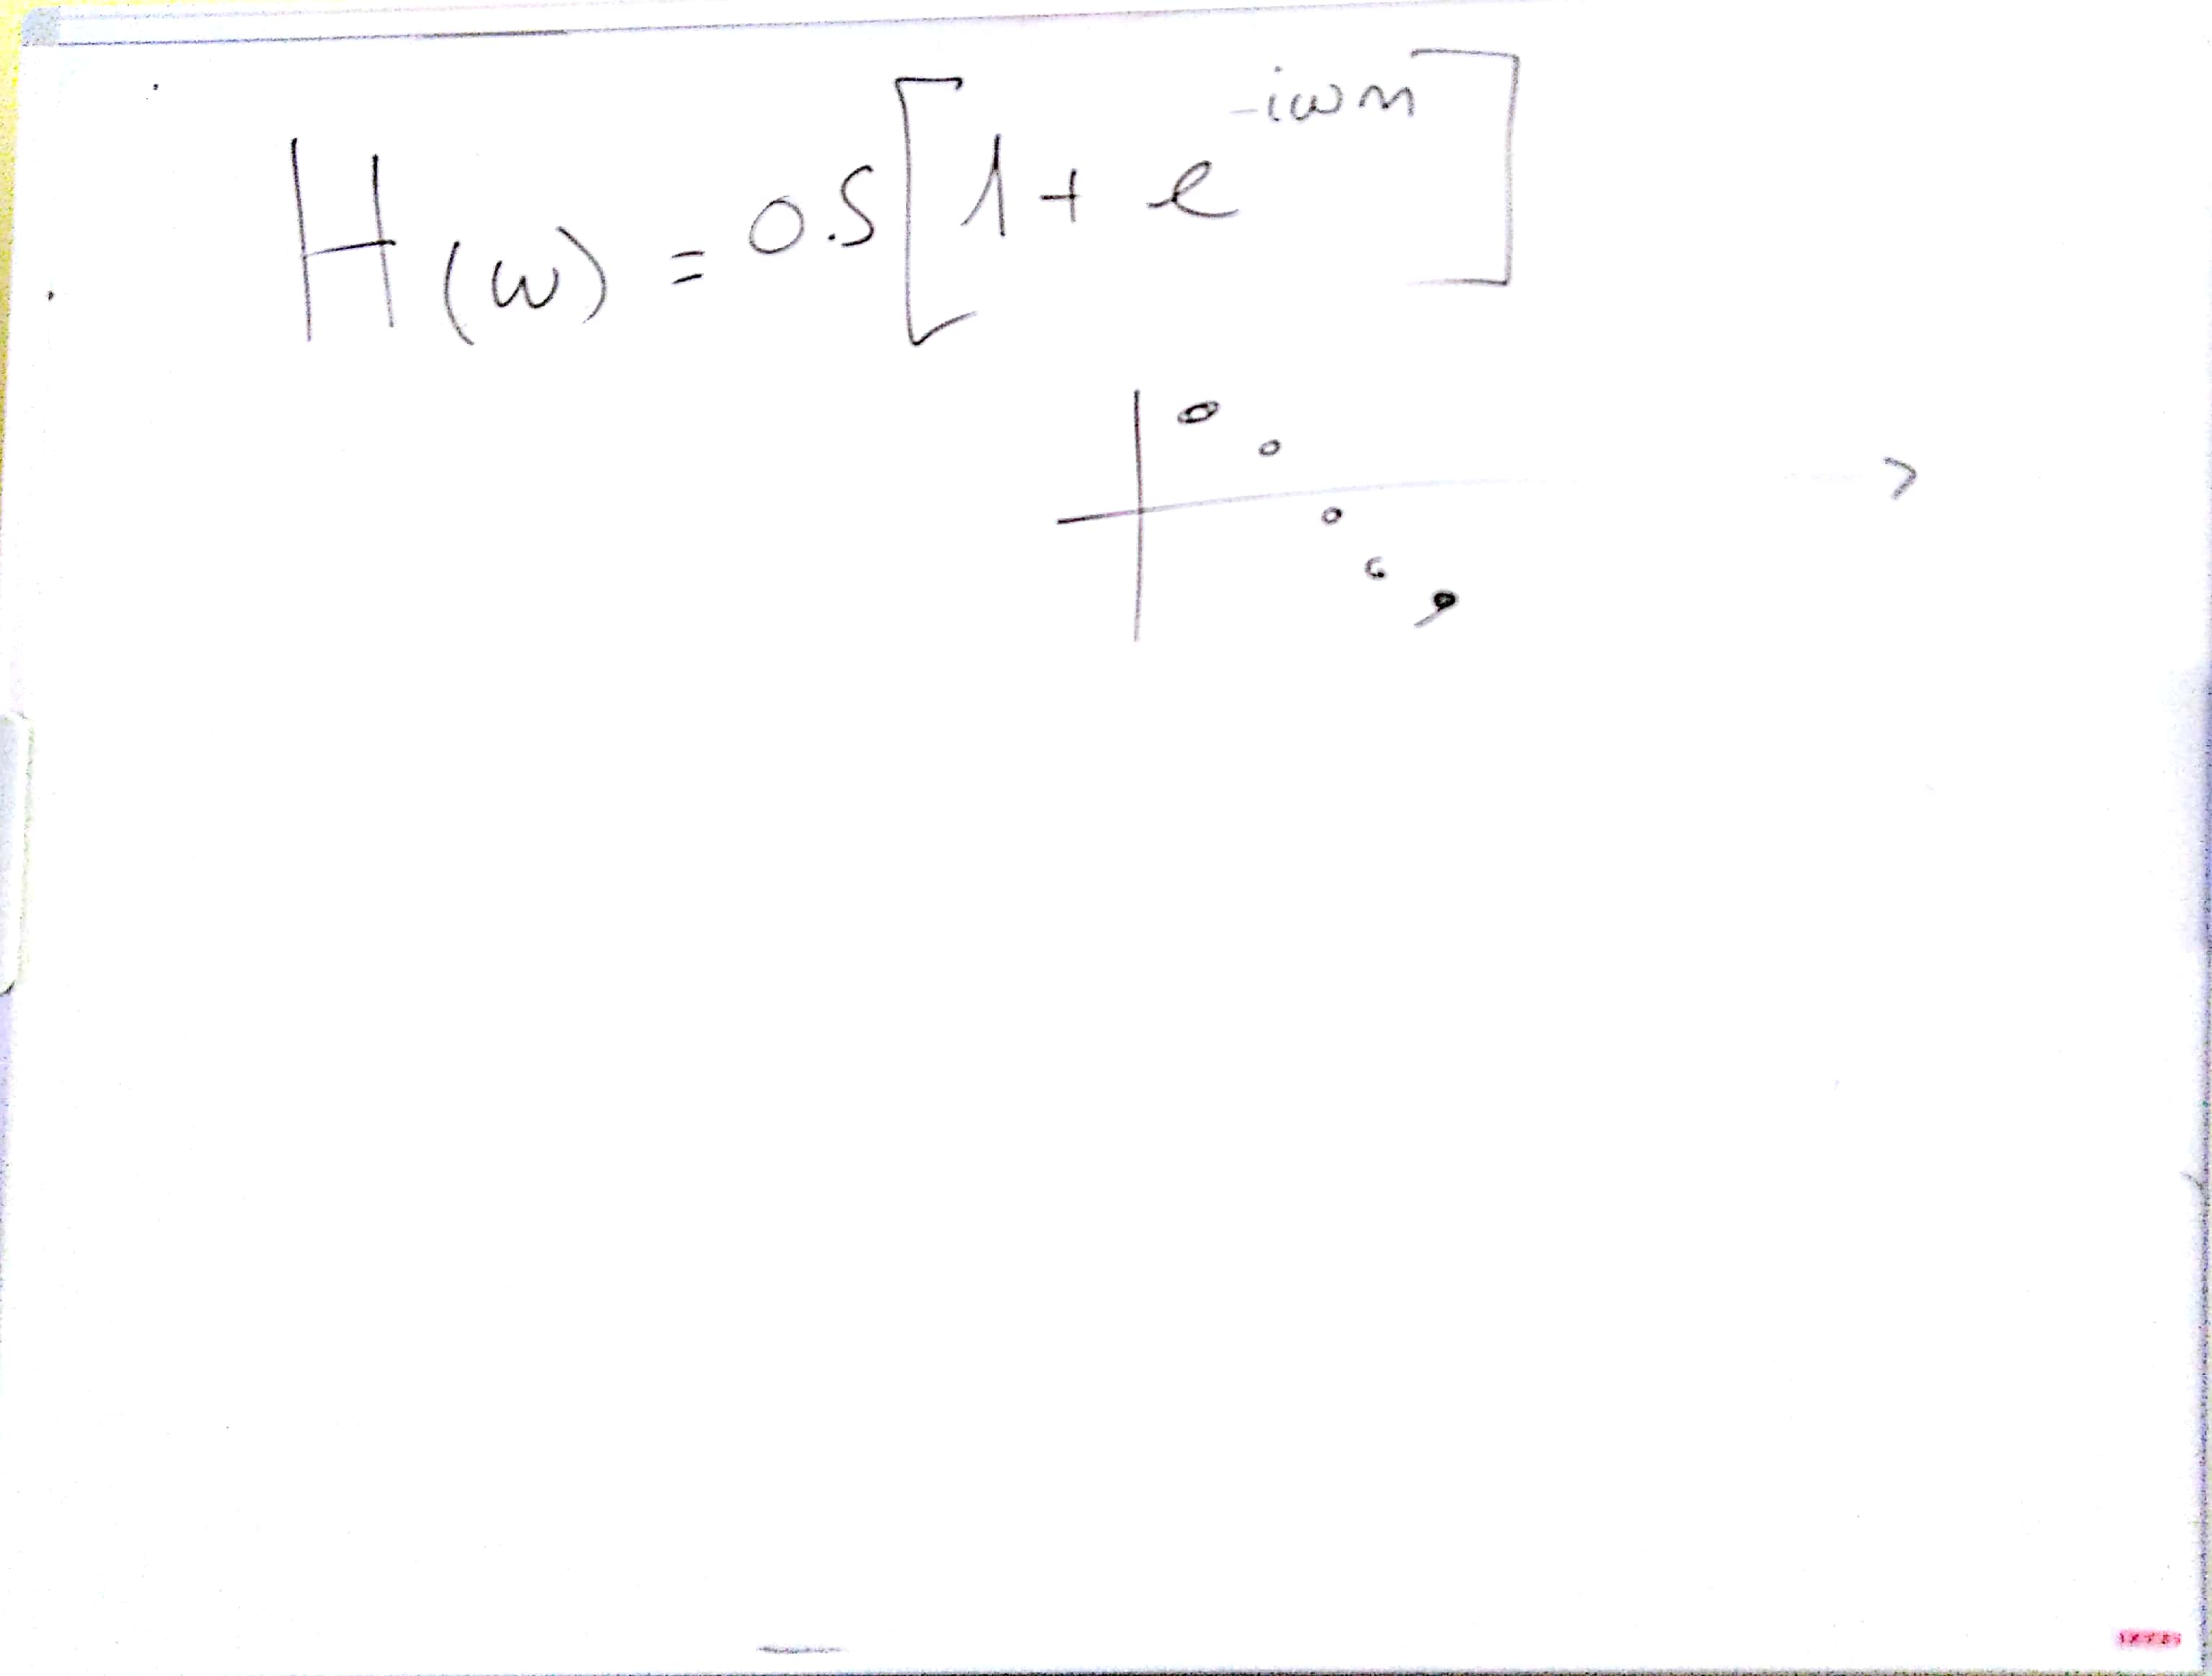 H(ω) = 0.5[1 + e^{-iωn}]